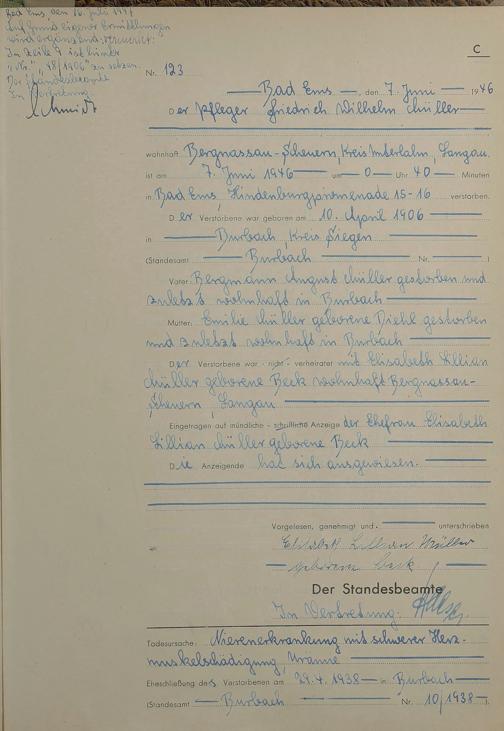 Bad Ems, den 16. Juli 19
Auf Grund eigener Ermittlungen
wird ergänzend vermerkt:
In Zeile 7 ist hinter
"Nr." "48/1906" zu setzen.
Der Standesbeamte
In Vertretung
Schmidt
C
Nr. 123
Bad Ems, den 7. Juni 1946
Der Pfleger Friedrich Wilhelm Müller
wohnhaft Bergnassau-Scheuern, Kreis Unterlahn, Langau.
ist am 7. Juni 1946 um 0 Uhr 40 Minuten
in Bad Ems, Hindenburgpromenade 15-16 verstorben.
Der Verstorbene war geboren am 10. April 1906
in Burbach, Kreis Siegen
(Standesamt Burbach Nr. )
Vater: Bergmann August Müller gestorben und
zuletzt wohnhaft in Burbach
Mutter: Emilie Müller geborene Diehl gestorben
und zuletzt wohnhaft in Burbach
Der Verstorbene war - nicht - verheiratet mit Elisabeth Lillian
Müller geborene Beck wohnhaft Bergnassau-
Scheuern Langau
Eingetragen auf mündliche - schriftliche Anzeige der Ehefrau Elisabeth
Lillian Müller geborene Beck
Die Anzeigende hat sich ausgewiesen.
Vorgelesen, genehmigt und unterschrieben
Elisabeth Lillian Müller
geborene Beck
Der Standesbeamte
In Vertretung:
Todesursache: Nierenerkrankung mit schwerer Herz-
muskelschädigung, Urämie
Eheschließung des Verstorbenen am 29.4.1938 in Burbach
(Standesamt Burbach Nr. 10/1938)